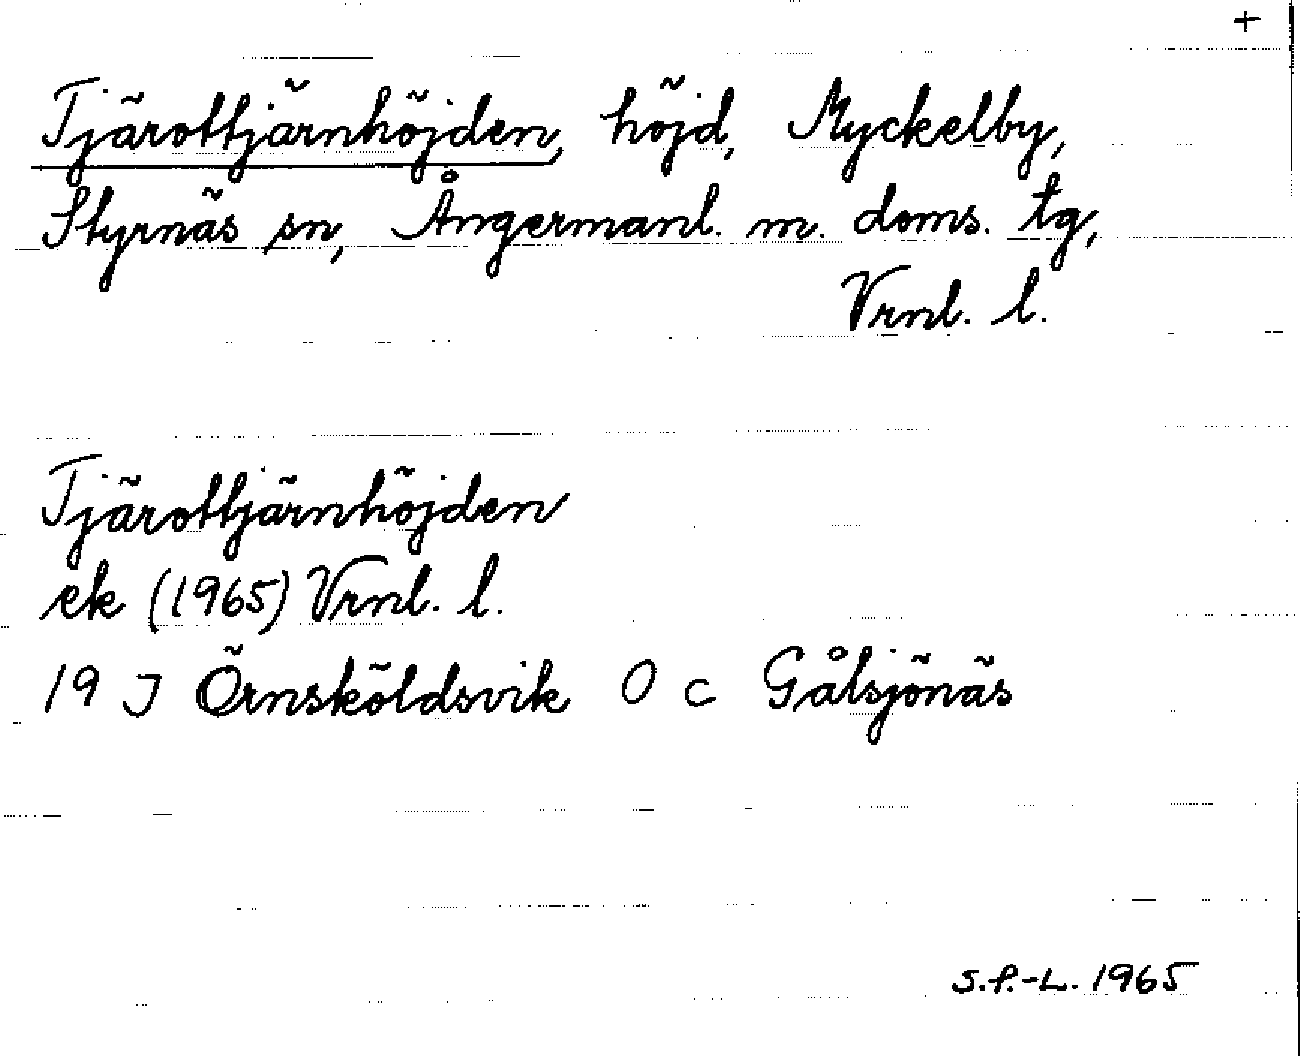 +
Tjärottjärnhöjden, höjd, Myckelby,
Styrnäs sn, Ångermanl. m. doms. tg,
Vrnl. l.
Tjärottjärnhöjden
ek (1965) Vrnl. l.
19 J Örnsköldsvik 0 c Gålsjönäs
S.P.-L. 1965